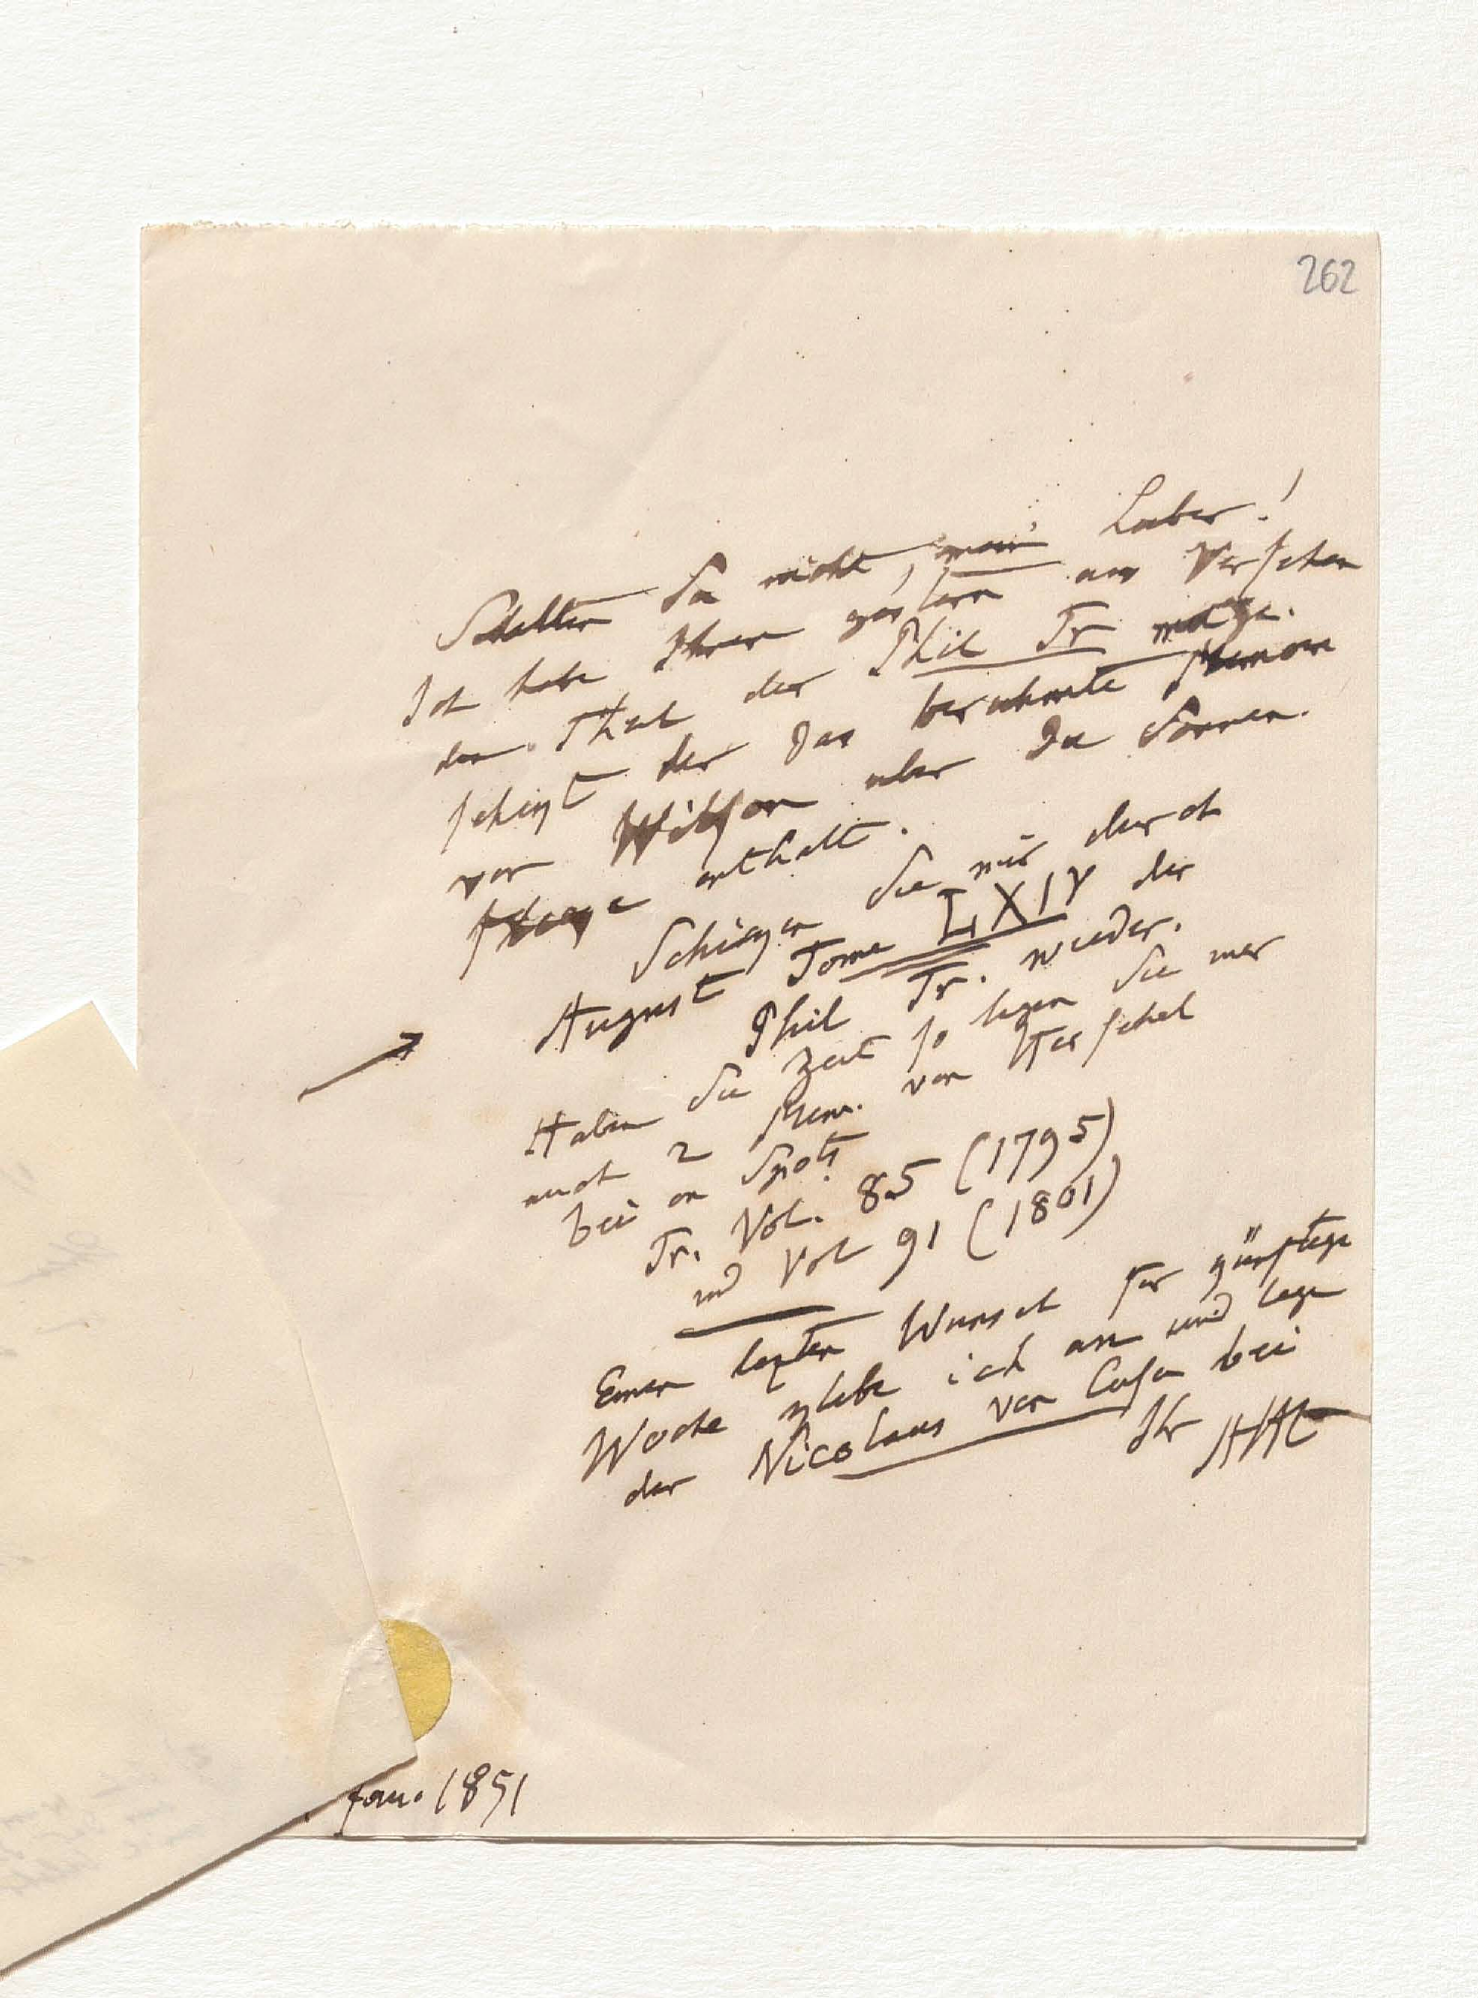 262
Schelten Sie nicht, mein Lieber!
Ich habe Ihnen gestern aus Versehen
den Theil der Phil Tr mitge-
schikt der das berühmte Memoire
von Wilson über die Sonnen-
flecke enthält.
Schiken Sie mir durch
August Tome LXIV der
Phil Tr. wieder.
Haben Sie Zeit so legen Sie mir
auch 2 Mem. von Herschel
bei on Spots
Tr. Vol. 85 (1795)
und Vol 91 (1801)
Einen lezten Wunsch für günstige
Woche ich an und lege
der Nicolaus von Cusa bei
Ihr AHt
Jan. 1851